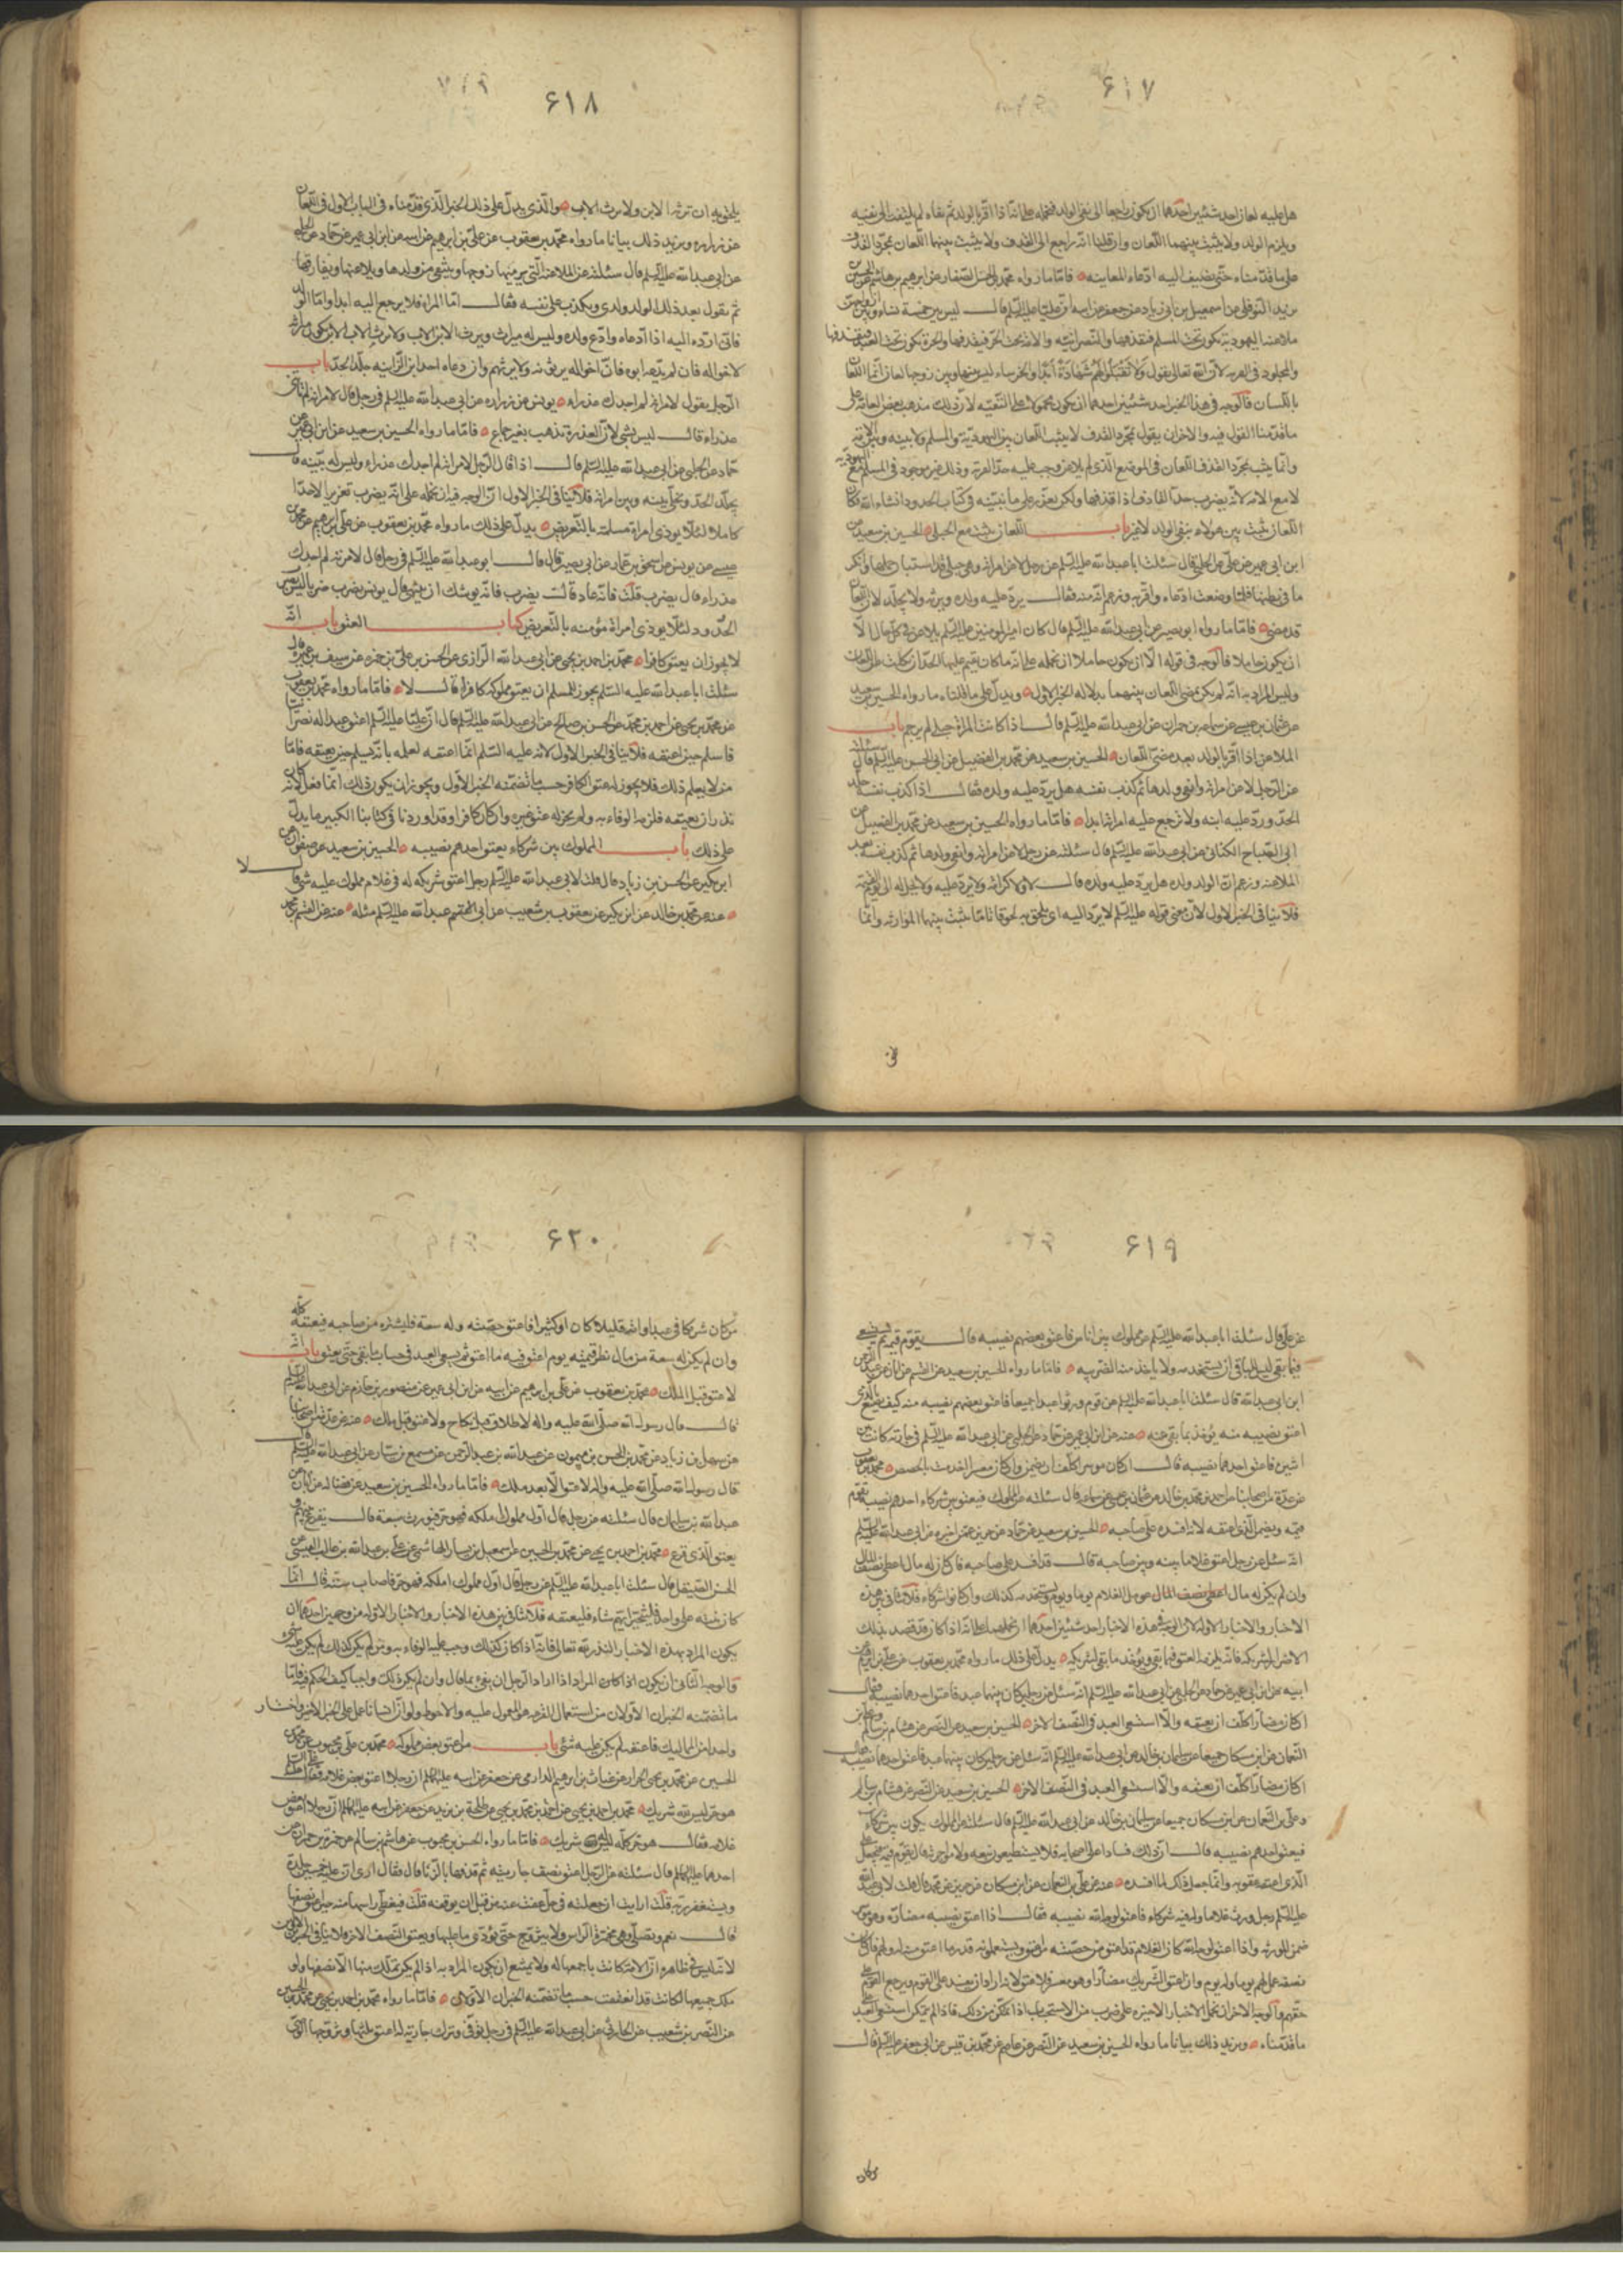 ۶۱۷
هل عليه لعان احد شيئين احدهما ان يكون راجعا الى نفى الولد فنحمله على انه اذا اقر بالولد ثم نفاه لم يلتفت الى نفيه
ويلزم الولد ولا يثبت بينهما اللعان وان قلنا انه راجع الى القذف ولا يثبت بينهما اللعان بمجرد القذف
على ما قدمناه حتى يضيف اليه ادعاء المعاينه فاما ما رواه محمد بن الحسن الصفار عن ابرهيم بن هاشم عن الحسين
بن يزيد النوفلى عن اسمعيل بن ابى زياد عن جعفر عن ابيه ان عليا عليه السلم قال ليس بين خمسة نساء وبين ازواجهن
ملاعنه اليهودية تكون تحت المسلم فيقذفها والنصرانيه والامة تحت الحر فيقذفها والحرة تكون تحت العبد فيقذفها
والمجلود فى الفريه لان الله تعالى يقول ولا تقبلوا لهم شهادة ابدا والخرساء ليس بينها وبين زوجها لعان انما اللعان
باللسان فالوجه فى هذا الخبر احد شيئين احدهما ان يكون محمولا على التقيه لان ذلك مذهب بعض العامة على
ما قدمنا القول فيه والاخر ان يقول بمجرد القذف لا يثبت اللعان بين اليهودية والمسلم ولا بينه وبين الامة
وانما يثبت بمجرد القذف اللعان فى الموضع الذى لم يلاعن وجب عليه حد الفرية وذلك غير موجود فى المسلم مع اليهوديه
لا مع الامة لانه لا يضرب حد القاذف اذا قذفها ولكن يعزر على ما نبينه فى كتاب الحدود ان شاء الله فكان
اللعان يثبت بين هؤلاء بنفى الولد لا غير باب اللعان يثبت مع الحبلى الحسين بن سعيد عن
ابن ابى عمير عن الحلبى قال سئلت ابا عبد الله عليه السلم عن رجل لاعن امراته وهى حبلى قد استبان حملها وانكر
ما فى بطنها فلما وضعت ادعاه واقر به وزعم انه منه فقال يرد عليه ولده ويرثه ولا يجلد لان اللعان
قد مضى فاما ما رواه ابو بصير عن ابى عبد الله عليه السلم قال كان امير المومنين عليه السلم يلاعن فى كل حال الا
ان يكون حاملا فالوجه فى قوله الا ان يكون حاملا ان نحمله على انه ما كان يقيم عليها الحد ان نكلت عن اللعان
وليس المراد به انه لم يكن يمضى اللعان بينهما بدلاله الخبر الاول ويدل على ما قلناه ما رواه الحسين بن سعيد
عن عثمان بن عيسى عن سماعه عن ابى عبد الله عليه السلم قال اذا كانت المراة حبلى لم ترجم باب
الملاعن اذا اقر بالولد بعد مضى اللعان الحسين بن سعيد عن محمد بن الفضيل عن ابى الحسن عليه السلم قال سئلته
عن الرجل لاعن امراته وانتفى من ولدها ثم كذب نفسه هل يرد عليه ولده فقال اذا كذب نفسه جلد
الحد ورد عليه ابنه ولا ترجع عليه امراته ابدا فاما ما رواه الحسين بن سعيد عن محمد بن الفضيل عن
ابى الصباح الكنانى عن ابى عبد الله عليه السلم قال سئلته عن رجل لاعن امراته وانتفى من ولدها ثم كذب نفسه بعد
الملاعنه وزعم ان الولد ولده هل يرد عليه ولده قال لا ولا كرامة ولا يرد عليه ولا تحل له الى يوم القيمة
فلا ينافى الخبر الاول لان معنى قوله عليه السلم لا يرد اليه اى يلحق به لحوقا تاما يثبت بينهما الموارثه وانما
۶۱۸
يلحق به ان ترثه الابن ولا يرث الاب والذى يدل على ذلك الخبر الذى قدمناه فى الباب الاول فى اللعان
عن زراره ويزيد ذلك بيانا ما رواه محمد بن يعقوب عن على بن ابرهيم عن ابيه عن ابن ابى عمير عن حماد عن الحلبى
عن ابى عبد الله عليه السلم قال سئلته عن الملاعنة التى يرميها زوجها وينتفى من ولدها ويلاعنها ويفارقها
ثم يقول بعد ذلك الولد ولدى ويكذب نفسه فقال اما المراة فلا يرجع اليه ابدا واما الولد
فانى ارده اليه اذا ادعاه ولا ادع ولده وليس له ميراث ويرث الابن الاب ولا يرث الاب الابن يكون ميراثه
لاخواله فان لم يدعه ابوه فان اخواله يرثونه ولا يرثهم وان دعاه احد ابن الزانيه جلد الحد باب
الرجل يقول لامراته لم اجدك عذراء يونس عن زراره عن ابى عبد الله عليه السلم فى رجل قال لامراته لم تاتنى
عذراء قال ليس بشى لان العذرة تذهب بغير جماع فاما ما رواه الحسين بن سعيد عن ابن ابى عمير عن
حماد عن الحلبى عن ابى عبد الله عليه السلم قال اذا قال الرجل لامراته لم اجدك عذراء وليس له بينه قال
يجلد الحد ويخلى بينه وبين امراته فلا ينافى الخبر الاول ان الوجه فيه ان نحمله على انه يضرب تعزيرا لا حدا
كاملا لئلا يوذى امراة مسلمة بالتعريض يدل على ذلك ما رواه محمد بن يعقوب عن على بن ابرهيم عن محمد بن
عيسى عن يونس عن اسحق بن عمار عن ابى بصير قال قال ابو عبد الله عليه السلم فى رجل قال لامراته لم اجدك
عذراء قال يضرب قلت فانه عاد قال يضرب فانه يوشك ان ينتهى قال يونس يضرب ضربا ليس
الحدود لئلا يوذى امراة مؤمنه بالتعريض كتاب العتق باب انه
لا يجوز ان يعتق كافرا محمد بن احمد بن يحيى عن ابى عبد الله الرازى عن الحسن بن على بن ابى حمزه عن سيف بن عميره قال
سئلت ابا عبد الله عليه السلم يجوز للمسلم ان يعتق مملوكا كافرا قال لا فاما ما رواه محمد بن يعقوب
عن محمد بن يحيى عن احمد بن محمد عن الحسن بن صالح عن ابى عبد الله عليه السلم قال ان عليا عليه السلم اعتق عبدا له نصرانيا
فاسلم حين اعتقه فلا ينافى الخبر الاول لانه عليه السلم انما اعتقه لعلمه بانه يسلم حين يعتقه فاما
من لا يعلم ذلك فلا يجوز له عتق الكافر حسب ما تضمنه الخبر الاول ويجوز ان يكون ذلك انما فعل لانه كان
نذر ان يعتقه فلزمه الوفاء به ولم يجز له عتق غيره وان كان كافرا وقد اوردنا فى كتابنا الكبير ما يدل
على ذلك باب المملوك بين شركاء يعتق احدهم نصيبه الحسين بن سعيد عن صفوان عن
ابن بكير عن الحسن بن زياد قال قلت لابى عبد الله عليه السلم رجل اعتق شركه له فى غلام مملوك عليه شى قال لا
عنه عن محمد بن خالد عن ابن بكير عن يعقوب بن شعيب عن ابى عبد الله عليه السلم مثله عنه عن القسم بن محمد
۶۱۹
عن على قال سئلت ابا عبد الله عليه السلم عن مملوك بين اناس فاعتق بعضهم نصيبه قال يقوم قيمه ثم يستسعى
فيما بقى ليس للباقى ان يستخدمه ولا ياخذ منه الضريبه فاما ما رواه الحسين بن سعيد عن القسم عن ابان عن عبد الرحمن
ابن ابى عبد الله قال سئلت ابا عبد الله عليه السلم عن قوم ورثوا عبدا جميعا فاعتق بعضهم نصيبه منه كيف يصنع بالذى
اعتق نصيبه منه يؤخذ بما بقى منه عنه عن ابن ابى عمير عن حماد عن الحلبى عن ابى عبد الله عليه السلم فى جارية كانت بين
اثنين فاعتق احدهما نصيبه قال ان كان موسرا كلف ان يضمن وان كان معسرا اخدمت بالحصص محمد بن يعقوب
عن عدة من اصحابنا عن احمد بن محمد بن خالد عن عثمان بن عيسى عن سماعه قال سئلته عن المملوك فيعتق بين شركاء احدهم نصيبه يقوم
قيمه ويضمن الذى اعتقه لانه افسده على صاحبه الحسين بن سعيد عن حماد عن حريز عمن اخبره عن ابى عبد الله عليه السلم
انه سئل عن رجل اعتق غلاما بينه وبين صاحبه قال قد افسد على صاحبه فان كان له مال اعطى نصف المال
وان لم يكن له مال اعطى نصف المال عومل الغلام يوما ويوم يستخدمه كذلك وان كانوا شركاء فلا تنافى بين هذه
الاخبار والاخبار الاوله لان الوجه فى هذه الاخبار احد شيئين احدهما ان نحملها على انه اذا كان قد قصد بذلك
الاضرار لشريكه فانه يلزمه العتق فيما بقى ويؤخذ ما بقى لشريكه يدل على ذلك ما رواه محمد بن يعقوب عن على بن ابرهيم عن
ابيه عن ابن ابى عمير عن حماد عن الحلبى عن ابى عبد الله عليه السلم انه سئل عن رجلين كان بينهما عبد فاعتق احدهما نصيبه فقال
ان كان مضارا كلف ان يعتقه والا استسعى العبد فى النصف الاخر الحسين بن سعيد عن النضر عن هشام بن سالم وعلى بن
النعمان عن ابن مسكان جميعا عن سليمان بن خالد عن ابى عبد الله عليه السلم انه سئل عن رجلين كان بينهما عبد فاعتق احدهما نصيبه فقال
ان كان مضارا كلف ان يعتقه والا استسعى العبد فى النصف الاخر الحسين بن سعيد عن النضر عن هشام بن سالم
وعلى بن النعمان عن ابن مسكان جميعا عن سليمان بن خالد عن ابى عبد الله عليه السلم قال سئلته عن المملوك يكون بين شركاء
فيعتق احدهم نصيبه قال ان ذلك فساد على اصحابه فلا يستطيعون بيعه ولا مواجرته قال يقوم قيمه فيجعل على
الذى اعتقه عقوبه وانما جعل ذلك لما افسده عنه عن على بن النعمان عن ابن مسكان عن حريز عن محمد قال قلت لابى عبد الله
عليه السلم رجل ورث غلاما وله فيه شركاء فاعتق لوجه الله نصيبه فقال اذا اعتق نصيبه مضارة وهو موسر
ضمن للورثه واذا اعتق لوجه الله كان الغلام قد اعتق من حصته من اعتق ويستعملونه على قدر ما اعتق منه له ولهم فان كان
نصفه عمل لهم يوما وله يوم وان اعتق الشريك مضارا وهو معسر فلا عتق له لانه اراد ان يفسد على القوم ويرجع القوم على
حقهم والوجه الاخر ان نحمل الاخبار الاخيره على ضرب من الاستحباب اذا تمكن من ذلك فاذا لم يتمكن استسعى العبد على
ما قدمناه ويزيد ذلك بيانا ما رواه الحسين بن سعيد عن النضر عن عاصم عن محمد بن قيس عن ابى جعفر عليه السلم قال
من كان
۶۲۰
من كان شريكا فى عبد او امة قليلا كان او كثيرا فاعتق حصته وله سعة فليشتره من صاحبه فيعتقه كله
وان لم يكن له سعة من مال نظر قيمته يوم اعتق منه ما اعتق ثم يسعى العبد فى حساب ما بقى حتى يعتق باب انه
لا عتق قبل الملك محمد بن يعقوب عن على بن ابرهيم عن ابيه عن ابن ابى عمير عن منصور بن حازم عن ابى عبد الله عليه السلم
قال قال رسول الله صلى الله عليه واله لا طلاق قبل نكاح ولا عتق قبل ملك عنه عن عدة من اصحابنا
عن سهل بن زياد عن محمد بن الحسن بن شمون عن عبد الله بن عبد الرحمن عن مسمع بن سيار عن ابى عبد الله عليه السلم قال
قال رسول الله صلى الله عليه واله لا عتق الا بعد ملك فاما ما رواه الحسين بن سعيد عن فضاله عن ابان عن
عبد الله بن سليمان قال سئلته عن رجل قال اول مملوك املكه فهو حر فورث سبعة قال يقرع بينهم
يعتق الذى قرع محمد بن احمد بن يحيى عن محمد بن الحسين عن اسمعيل بن يسار الهاشمى عن على بن عبد الله بن غالب القيسى عن
الحسن الصيقل قال سئلت ابا عبد الله عليه السلم عن رجل قال اول مملوك املكه فهو حر فاصاب ستة قال انما
كان نيته على واحد فليتخير ايهم شاء فليعتقه فلا تنافى بين هذه الاخبار والاخبار الاوله من وجهين احدهما ان
يكون المراد بهذه الاخبار النذر لله تعالى فانه اذا كان كذلك وجب عليه الوفاء به ومتى لم يكن كذلك لم يكن عليه شى
والوجه الثانى ان يكون اذا كان المراد اذا اراد الرجل ان يفى بما قال وان لم يكن ذلك واجبا كيف الحكم فيه فاما
ما تضمنه الخبران الاولان من استعمال القرعه هو المعول عليه والاحوط ولو ان انسانا عمل على الخبر الاخير واختار
واحدا من المماليك فاعتقه لم يكن عليه شى باب من اعتق بعض مملوكه محمد بن على بن محبوب عن محمد بن
الحسين عن محمد بن يحيى الخزاز عن غياث بن ابرهيم الدارمى عن جعفر عن ابيه عليهما السلم ان رجلا اعتق بعض غلامه فقال على عليه السلم
هو حر ليس لله شريك محمد بن احمد بن يحيى عن احمد بن محمد بن يحيى عن طلحة بن زيد عن جعفر عن ابيه عليهما السلم ان رجلا اعتق بعض
غلامه فقال هو حر كله ليس لله شريك فاما ما رواه الحسن بن محبوب عن هاشم بن سالم عن حمزة بن حمران عن
احدهما عليهما السلم قال سئلته عن الرجل اعتق نصف جاريته ثم قذفها بالزنا قال فقال ارى ان عليه خمسين جلدة
ويستغفر ربه قلت ارايت ان جعلته فى حل وعفت عنه من قبل ان يرفعه قلت فيغطى راسها منه حين اعتق نصفها
قال نعم وتصلى وهى مخمرة الراس ولا يتزوج حتى يؤدى ما عليها ويعتق النصف الاخر فلا ينافى الخبرين الاولين
لانه ليس فى ظاهره ان الامة كانت باجمعها له ولا يمتنع ان يكون المراد به اذا لم يكن تملك منها الا نصفها ولو
ملك جميعها لكانت قد انعتقت حسب ما تضمنه الخبران الاولان فاما ما رواه محمد بن احمد بن يحيى عن محمد بن الحسين
عن النضر بن شعيب عن الحارثى عن ابى عبد الله عليه السلم فى رجل توفى وترك جارية له اعتق ثلثها وتزوجها الوصى